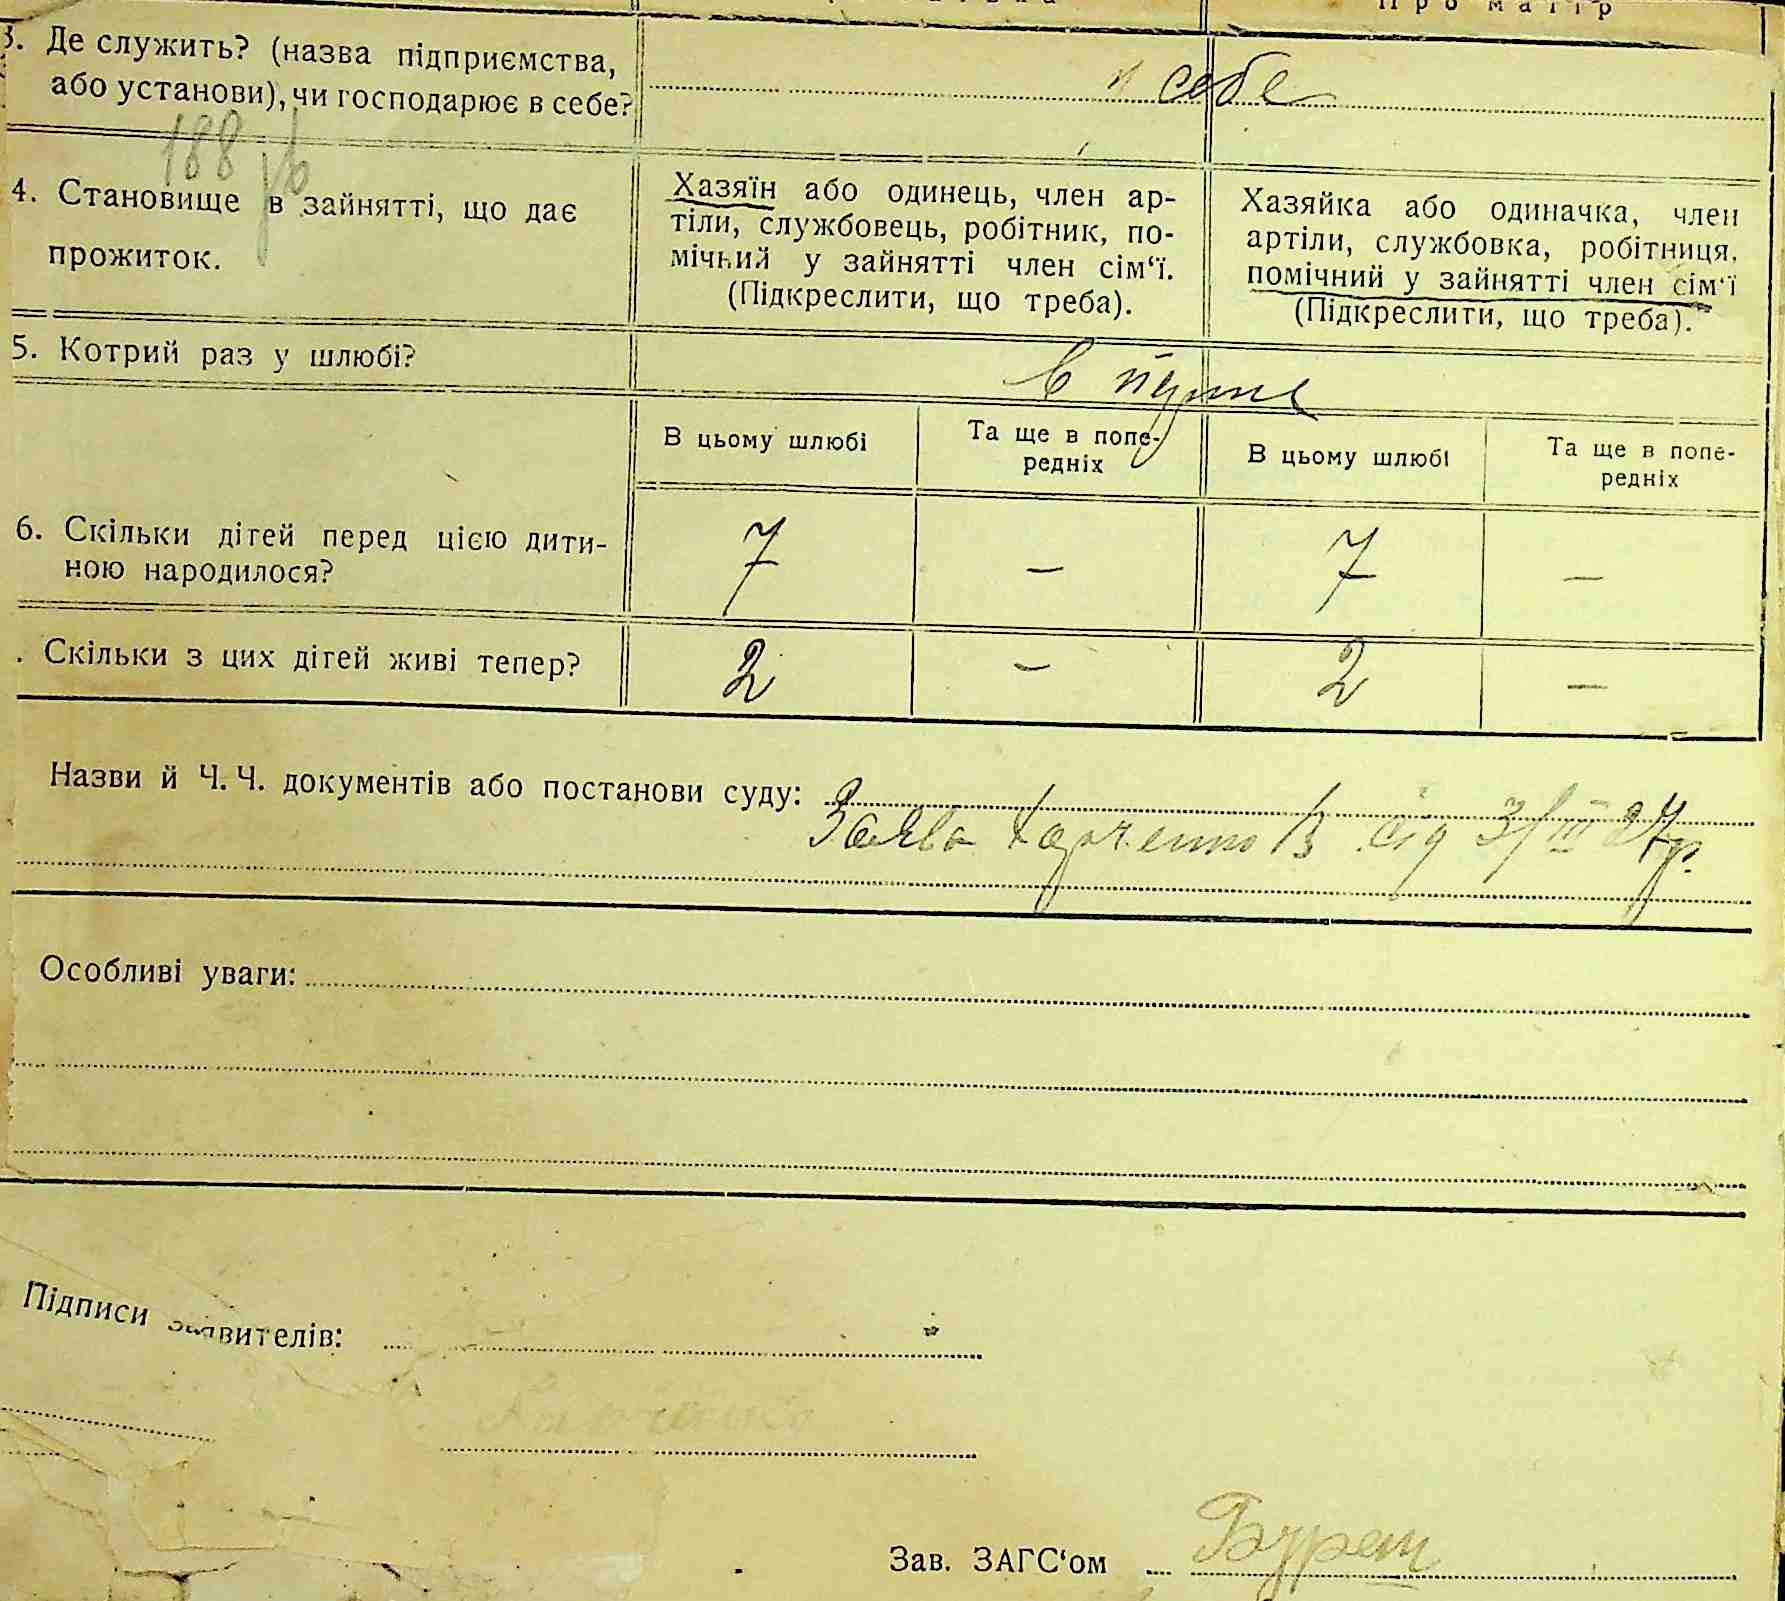 Про матір
3. Де служить? (назва підприємства,
або установи), чи господарює в себе?
в себе
188
4. Становище в зайнятті, що дає
прожиток.
Хазяїн або одинець, член ар-
тіли, службовець, робітник, по-
мічний у зайнятті член сім‘ї.
(Підкреслити, що треба).
Хазяйка або одиначка, член
артіли, службовка, робітниця,
помічний у зайнятті член сім‘ї
(Підкреслити, що треба).
5. Котрий раз у шлюбі?
В перше
В цьому шлюбі
Та ще в попе-
редніх
В цьому шлюбі
Та ще в попе-
редніх
6. Скільки дітей перед цією дити-
ною народилося?
7 – 7 –
. Скільки з цих дітей живі тепер?
2 – 2 –
Назви й Ч. Ч. документів або постанови суду:
Заява від 3/III 27р.
Особливі уваги:
Підписи заявителів:
Зав. ЗАГС‘ом